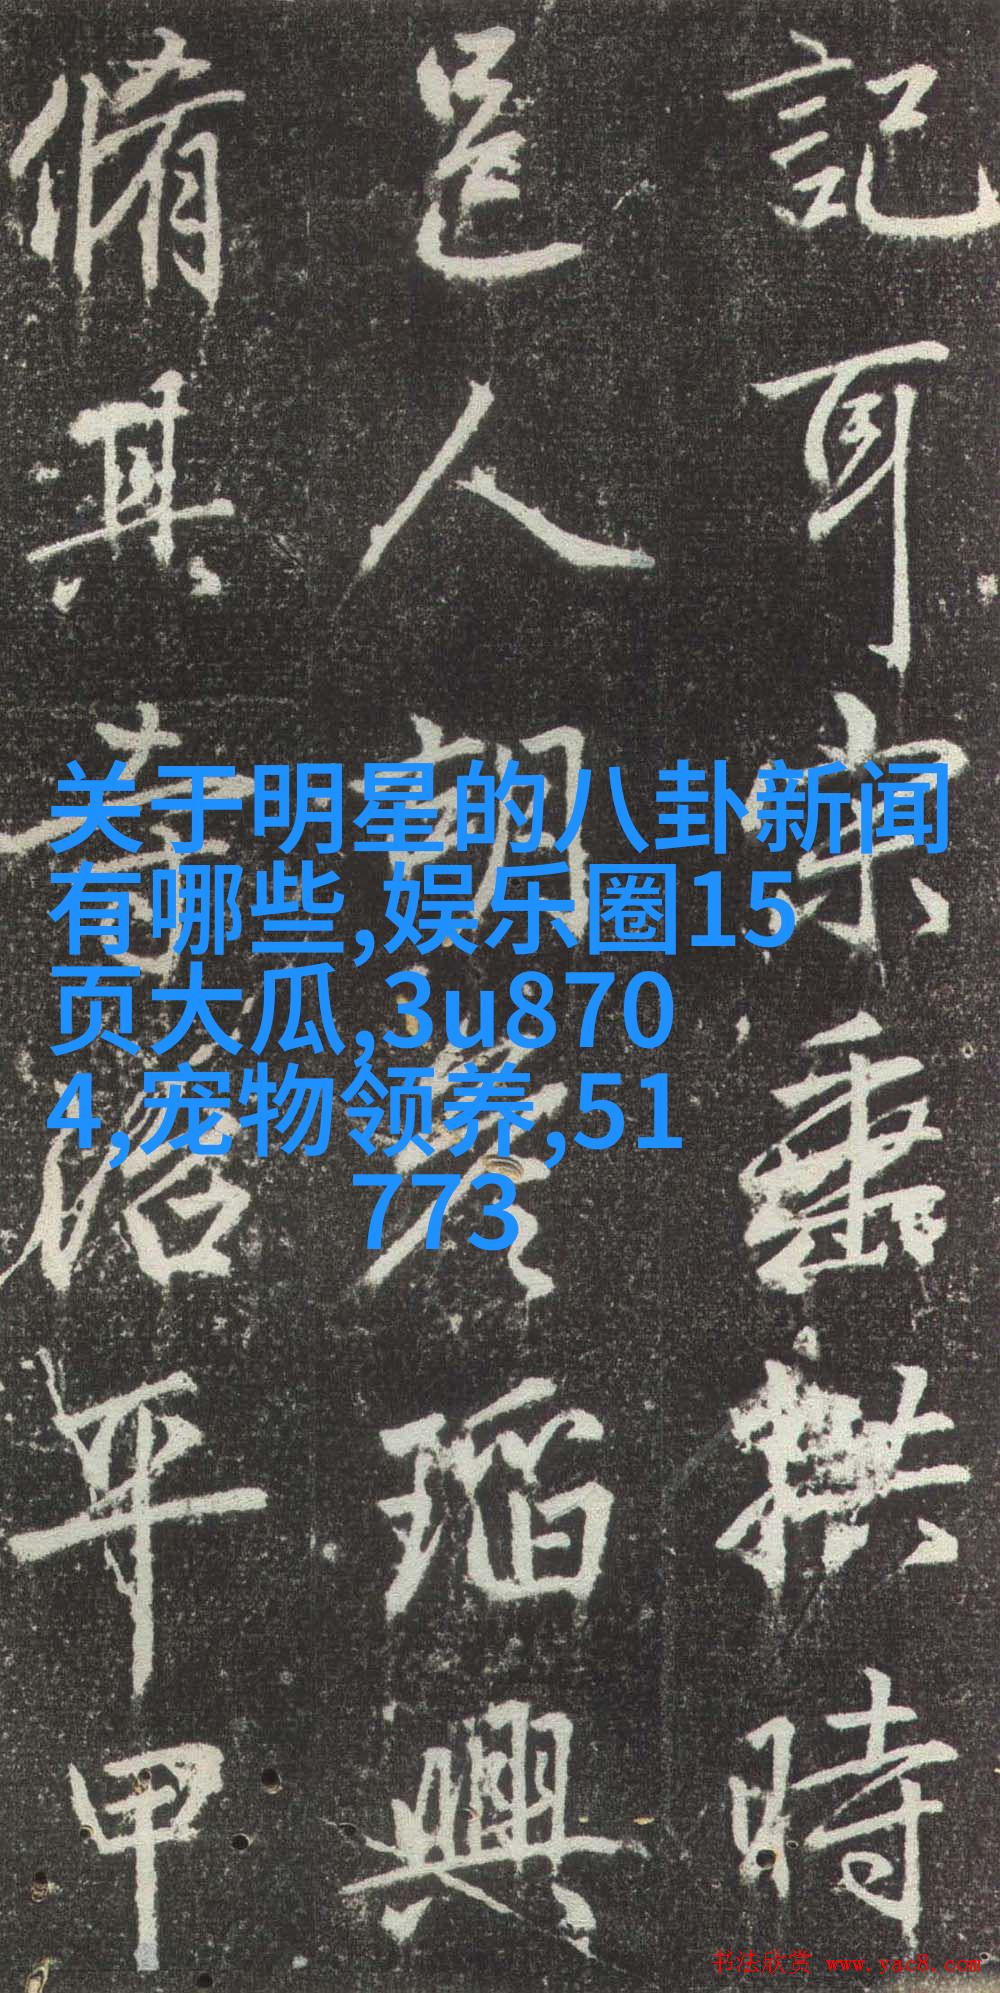 記耳宋垂拱時
邑人瑫興
脩其寺治平甲
关于明星的八卦新闻
有哪些,娱乐圈15
页大瓜,3u870
4,宠物领养,51
773
书法欣赏 www.yac8.com